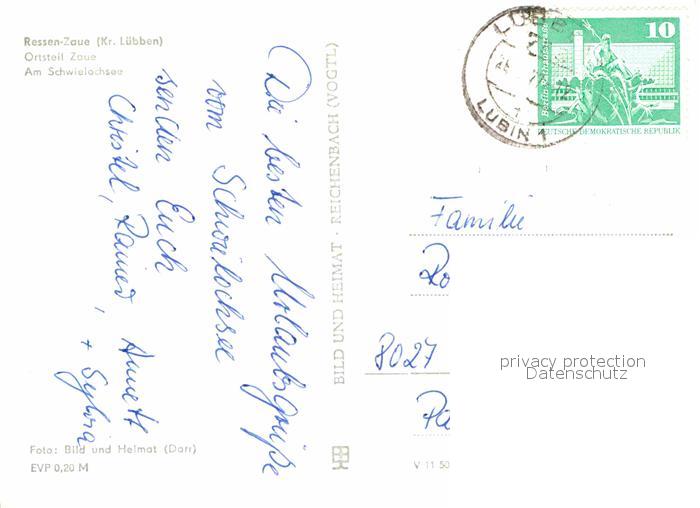 Ressen-Zaue (Kr. Lübben)
Ortsteil Zaue
Am Schwielochsee
Die besten Urlaubsgrüße
vom Schwielochsee
senden Euch
Christel, Rainer, Annett
+ Sylvia
Foto: Bild und Heimat (Darr)
EVP 0,20 M
BILD UND HEIMAT · REICHENBACH (VOGTL)
V 11 50
10
DEUTSCHE DEMOKRATISCHE REPUBLIK
LUBIN 1
Familie
Ro
8027
privacy protection
Datenschutz